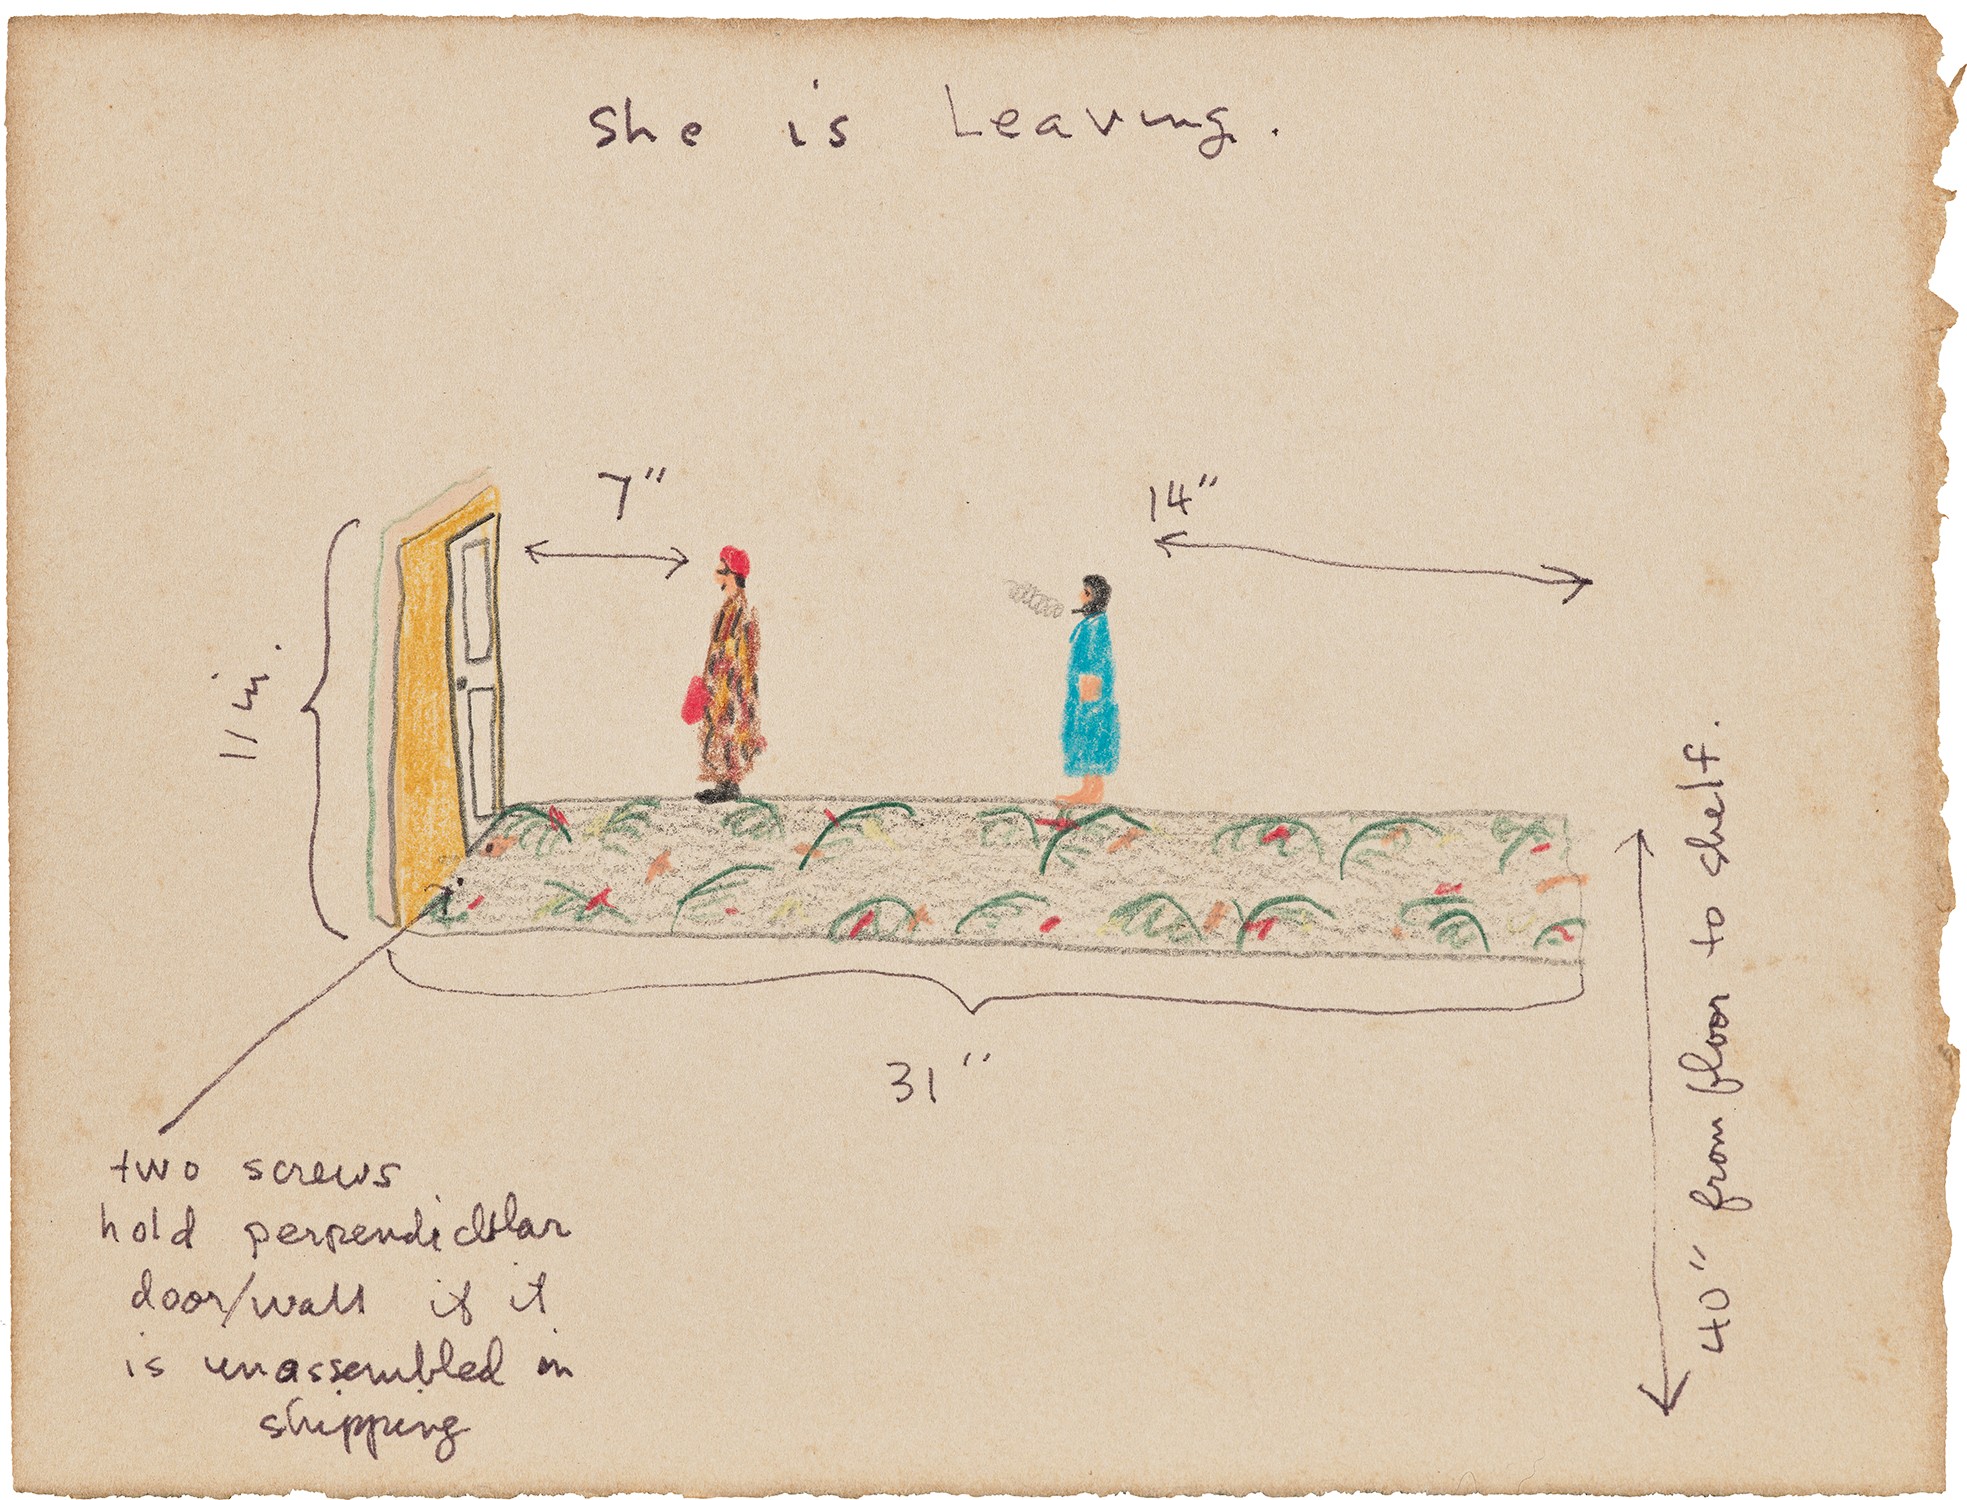 She is Leaving.
7"
14"
11 in.
31"
40" from floor to shelf.
two screws
hold perpendicular
door/wall if it
is unassembled in
shipping